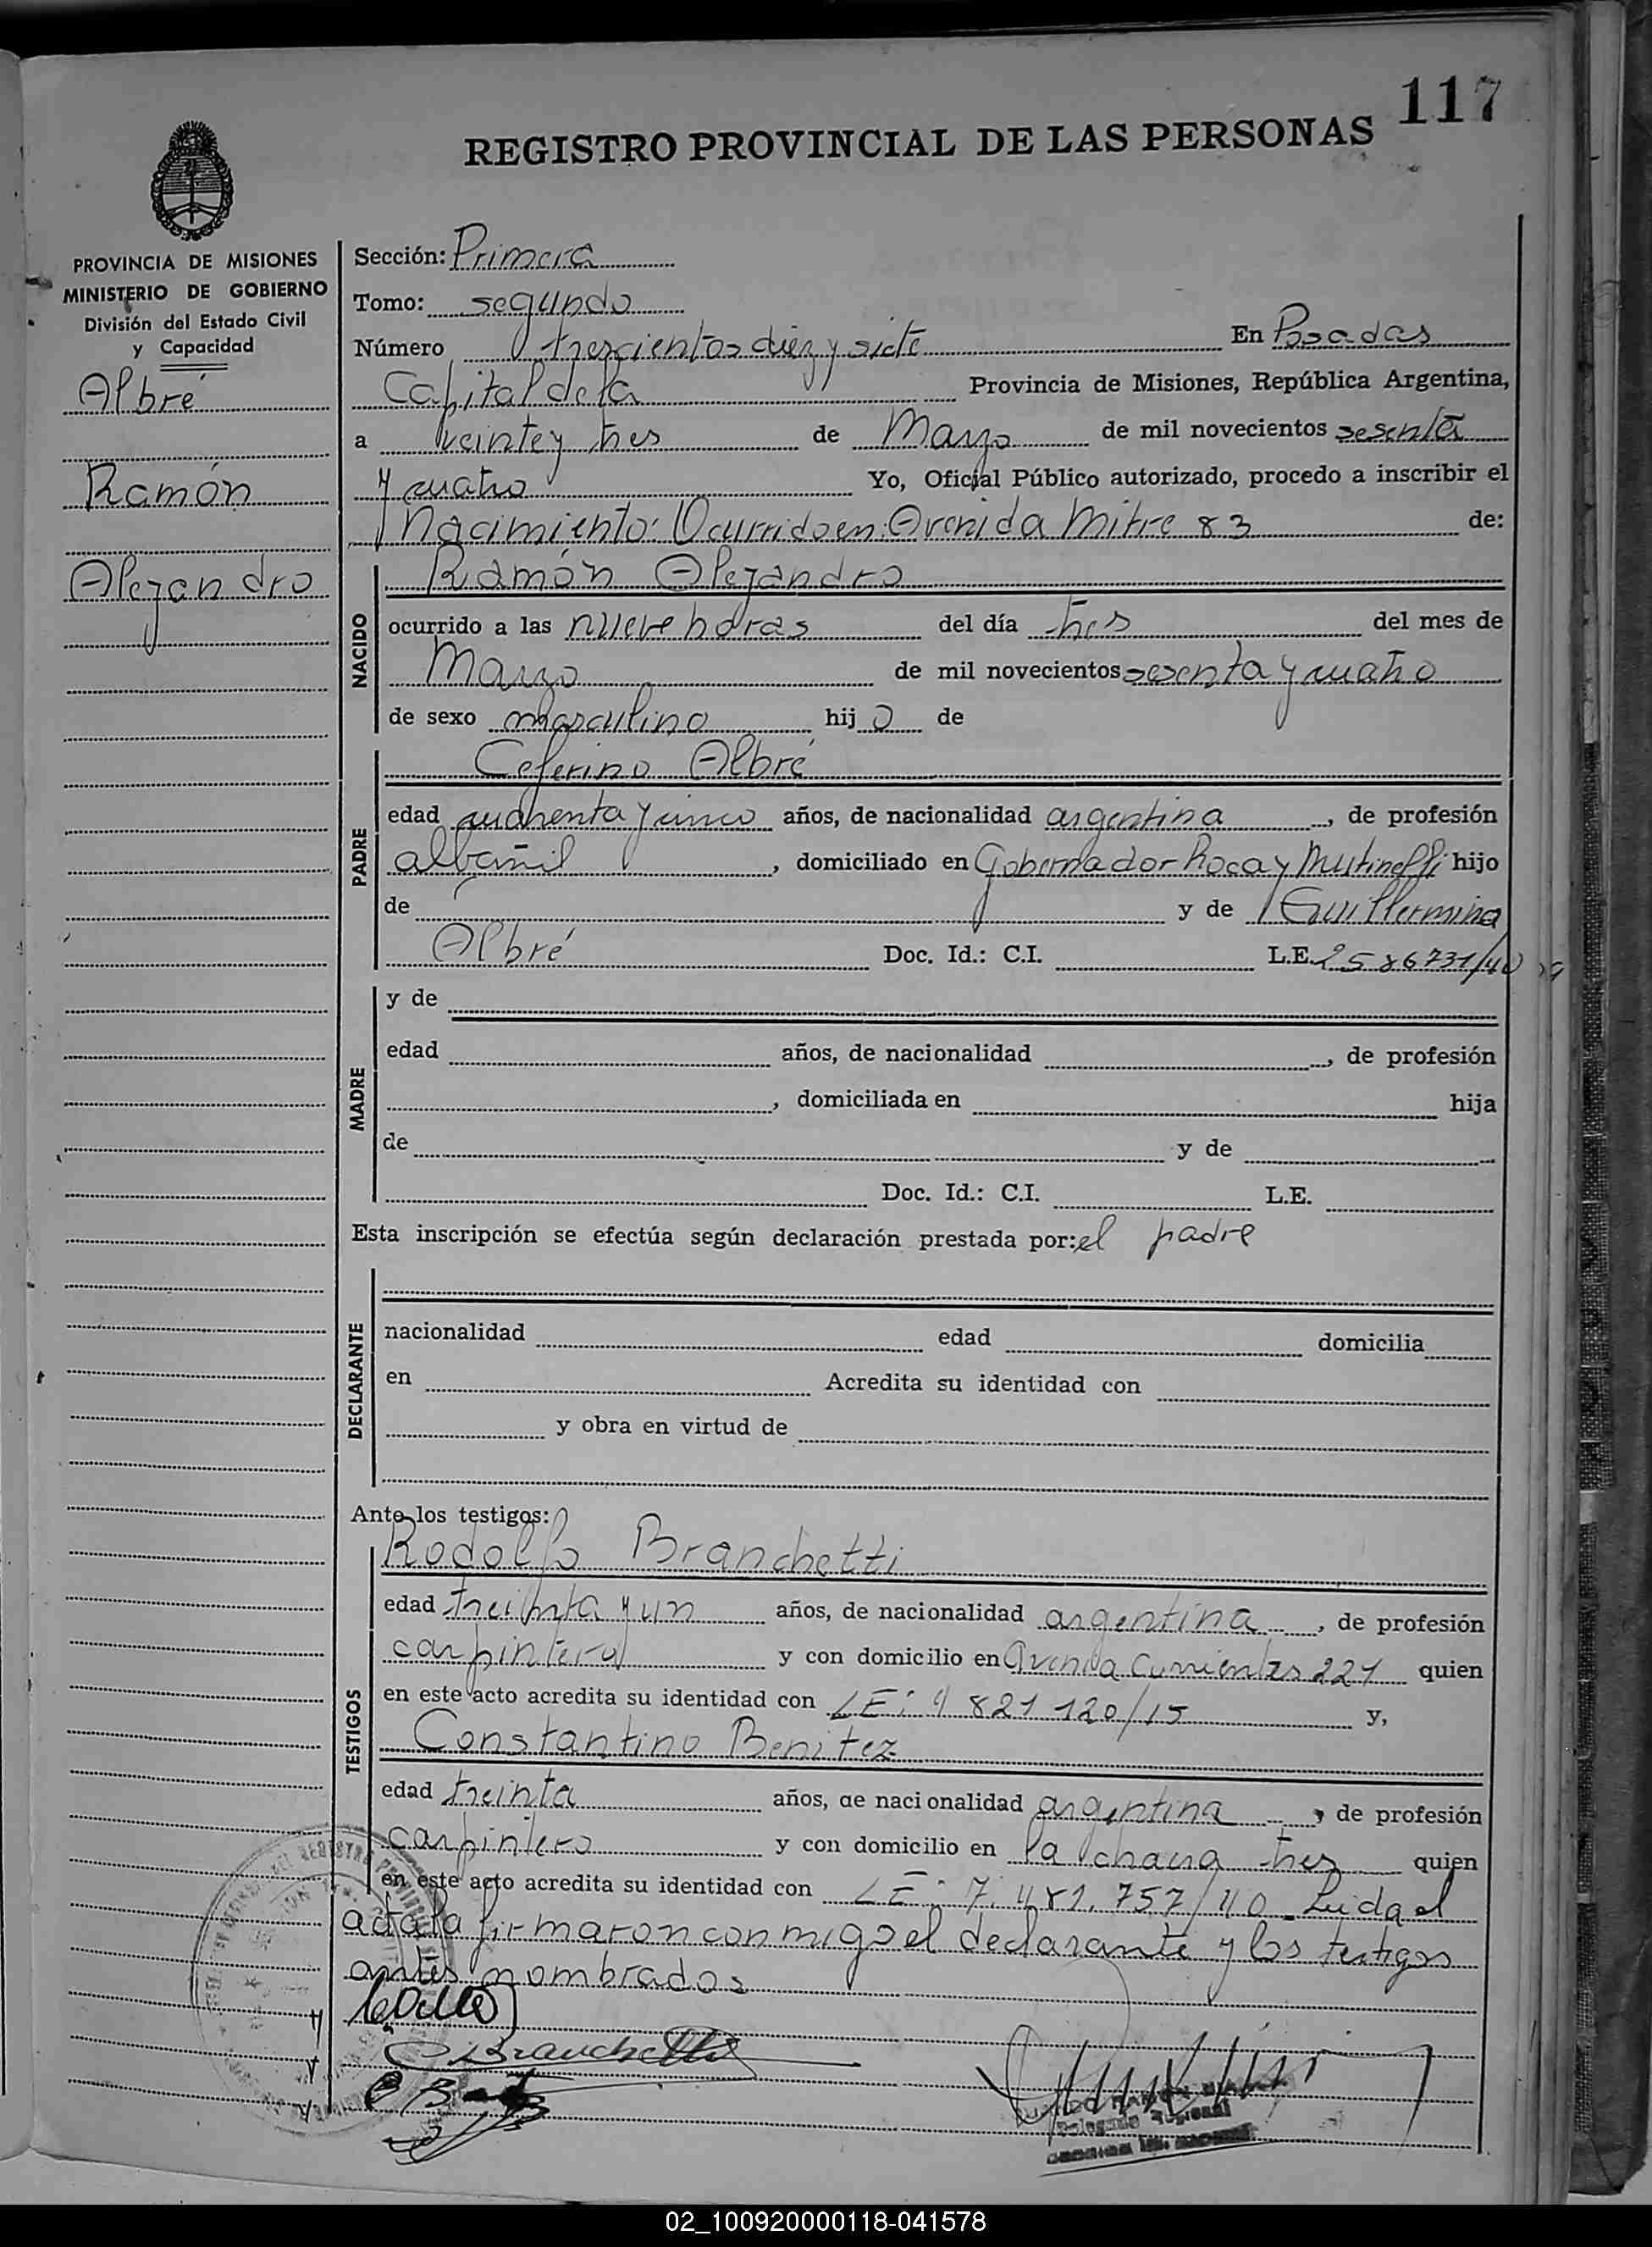 117
REGISTRO PROVINCIAL DE LAS PERSONAS
PROVINCIA DE MISIONES
MINISTERIO DE GOBIERNO
División del Estado Civil
y Capacidad
Albré
Ramón
Alejandro
Sección: Primera
Tomo: segundo
Número trescientos diez y siete En Posadas
Capital de la Provincia de Misiones, República Argentina,
a veinte y tres de Marzo de mil novecientos sesenta
y cuatro Yo, Oficial Público autorizado, procedo a inscribir el
Nacimiento: Ocurrido en: Avenida Mitre 83 de:
NACIDO
Ramón Alejandro
ocurrido a las nueve horas del día tres del mes de
Marzo de mil novecientos sesenta y cuatro
de sexo masculino hijo de
PADRE
Ceferino Albré
edad cuarenta y cinco años, de nacionalidad argentina, de profesión
albañil, domiciliado en Gobernador Roca y Mutinelli hijo
de y de Guillermina
Albré Doc. Id.: C.I. L.E. 2586731/40
MADRE
y de
edad años, de nacionalidad , de profesión
, domiciliada en hija
de y de
Doc. Id.: C.I. L.E.
Esta inscripción se efectúa según declaración prestada por: el padre
DECLARANTE
nacionalidad edad domicilia
en Acredita su identidad con
y obra en virtud de
Ante los testigos:
TESTIGOS
Rodolfo Branchetti
edad treinta y un años, de nacionalidad argentina, de profesión
carpintero y con domicilio en Avenida Corrientes 221 quien
en este acto acredita su identidad con LE: 4 821 120/15 y,
Constantino Benitez
edad treinta años, de nacionalidad argentina, de profesión
carpintero y con domicilio en la chacra tres quien
en este acto acredita su identidad con LE: 7.481.757/40 Leida el
acta la firmaron conmigo el declarante y los testigos
antes nombrados
Branchetti
Delegado Regional
02_100920000118-041578